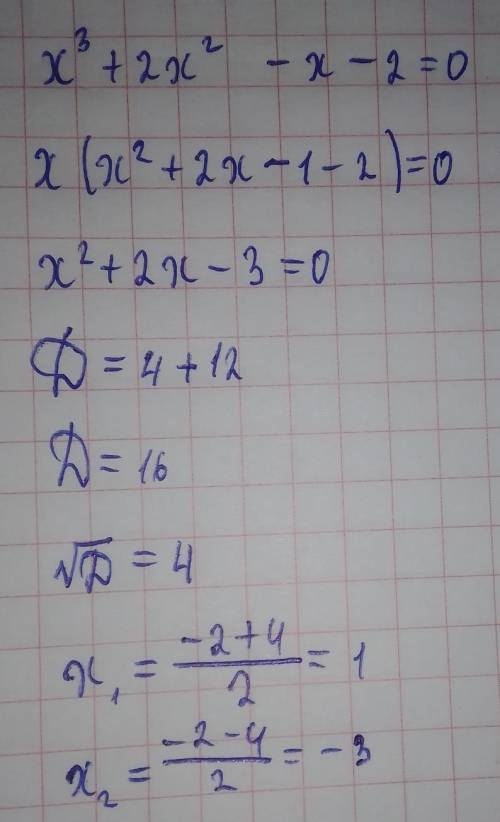 x³ + 2x² - x - 2 = 0
x (x² + 2x - 1 - 2) = 0
x² + 2x - 3 = 0
D = 4 + 12
D = 16
√D = 4
x₁ = (-2+4)/2 = 1
x₂ = (-2-4)/2 = -3